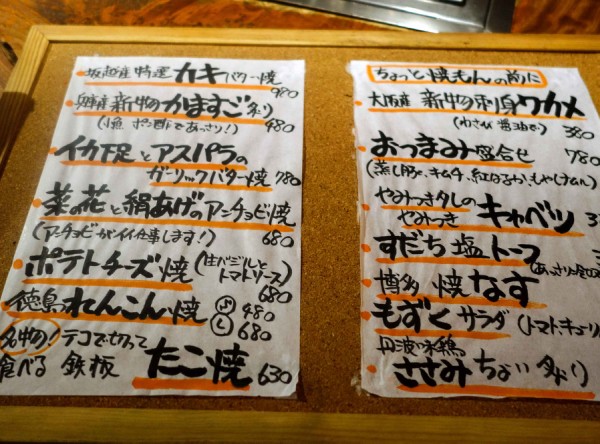 坂越産 特選 カキバター焼 980
兵庫産 新物かますご炙り
(小魚 ポン酢であっさり!) 480
イカ下足とアスパラの
ガーリックバター焼 780
菜の花と絹あげのアンチョビ焼
(アンチョビがイイ仕事します!) 680
ポテトチーズ焼(生バジルと
トマトソース)
680
徳島れんこん焼 よ 480
し 680
名物! テコで切って
食べる 鉄板 たこ焼 630
ちょっと焼もんの前に
大阪産 新物刺身ワカメ
(わさび醤油で) 380
おつまみ盛合せ 780
(蒸し豚、キムチ、紅はるか、もやしナムル)
やみつきタレの
やみつき キャベツ 3
すだち塩トーフ
博多 焼なす
もずくサラダ (トマト、キューリ
丹波の味鶏
ささみちょい炙り